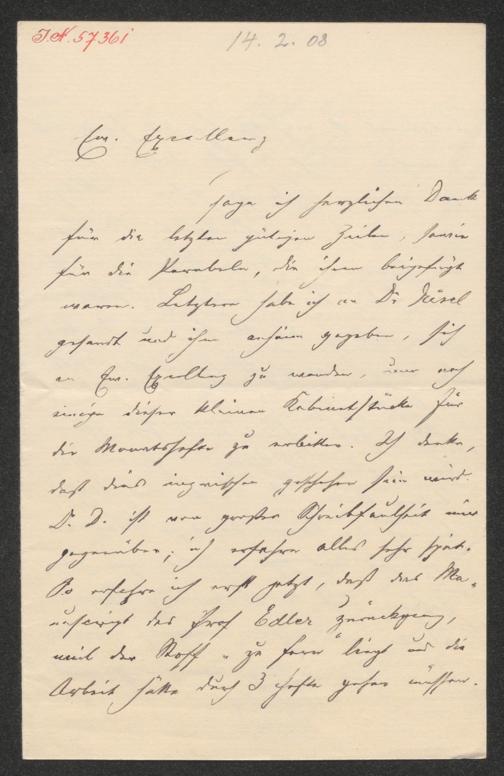 J.N. 57361
14. 2. 08
Ew. Exzellenz
sage ich herzlichen Dank
für die letzten gütigen Zeilen, sowie
für die Parabeln, die ihnen beigefügt
waren. Letztere habe ich an Dr Düsel
gesandt und ihm anheim gegeben, sich
an Ew. Exzellenz zu wenden, um noch
einige dieser kleinen Kabinetstücke für
die Monatshefte zu erbitten. Ich denke,
daß dies inzwischen geschehen sein wird.
Dr. D. ist von großer Schreibfaulheit mir
gegenüber; ich erfahre alles sehr spät.
So erfahre ich erst jetzt, daß das Ma-
nuscript des Prof Edler zurückging,
weil der Stoff „zu fern" liegt und die
Arbeit hätte durch 3 Hefte gehen müssen.